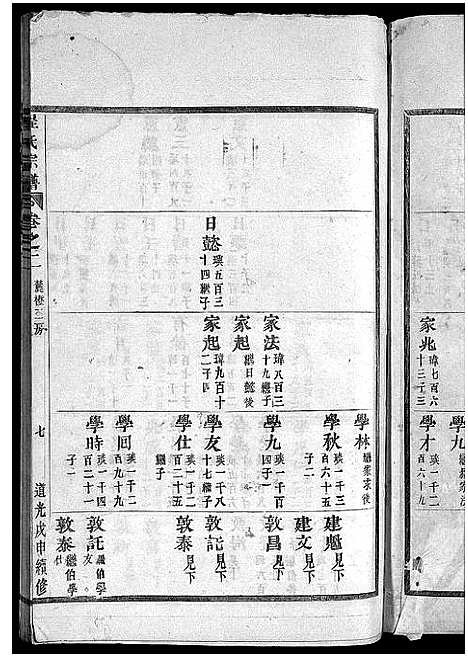 家兆 瑋七百六十三子三
學九 繼家法
學才 瑛一千二百六十九
家法 瑋八百三十九繼子
家起 繼日懿後
日懿 瑛五百三十四繼子
家起 瑋九百十二子四
學林 繼家求後
學秋 瑛一千三百六十五子二
學九 瑛一千百四子一
學友 瑛一千八十七繼子
學仕 瑛一千二百二十五繼子
學回 瑛一千二百九十九
學時 瑛一千二百二十一子二
建魁 見下
建文 見下
敦昌 見下
敦託 見下
敦泰 見下
敦託 繼伯學友
敦泰 繼伯學仕
氏宗譜
卷之二
七
道光戊申續修